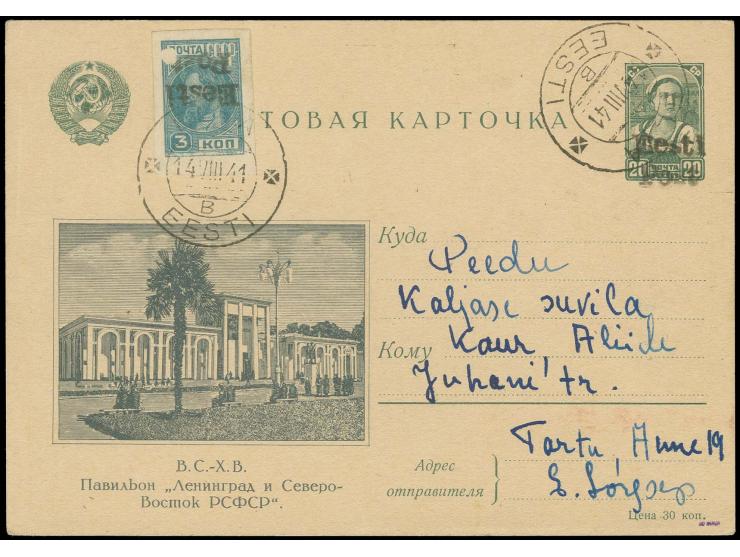 ПОЧТА
Eesti
Post
3 КОП
ПОЧТОВАЯ КАРТОЧКА
14 VIII 41
B
EESTI
EESTI
B
VIII 41
Eesti
Post
ПОЧТА
20 20
Куда
Peedu
Kaljase suvila
Кому
Kaur, Aliide
Juhani' tr.
Адрес отправителя
Tartu, Anne 19
Цена 30 коп.
В.С.-Х.В.
Павильон „Ленинград и Северо-
Восток РСФСР“.